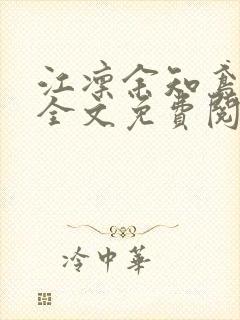 江凛余知鸢
全文免費閱
冷中華